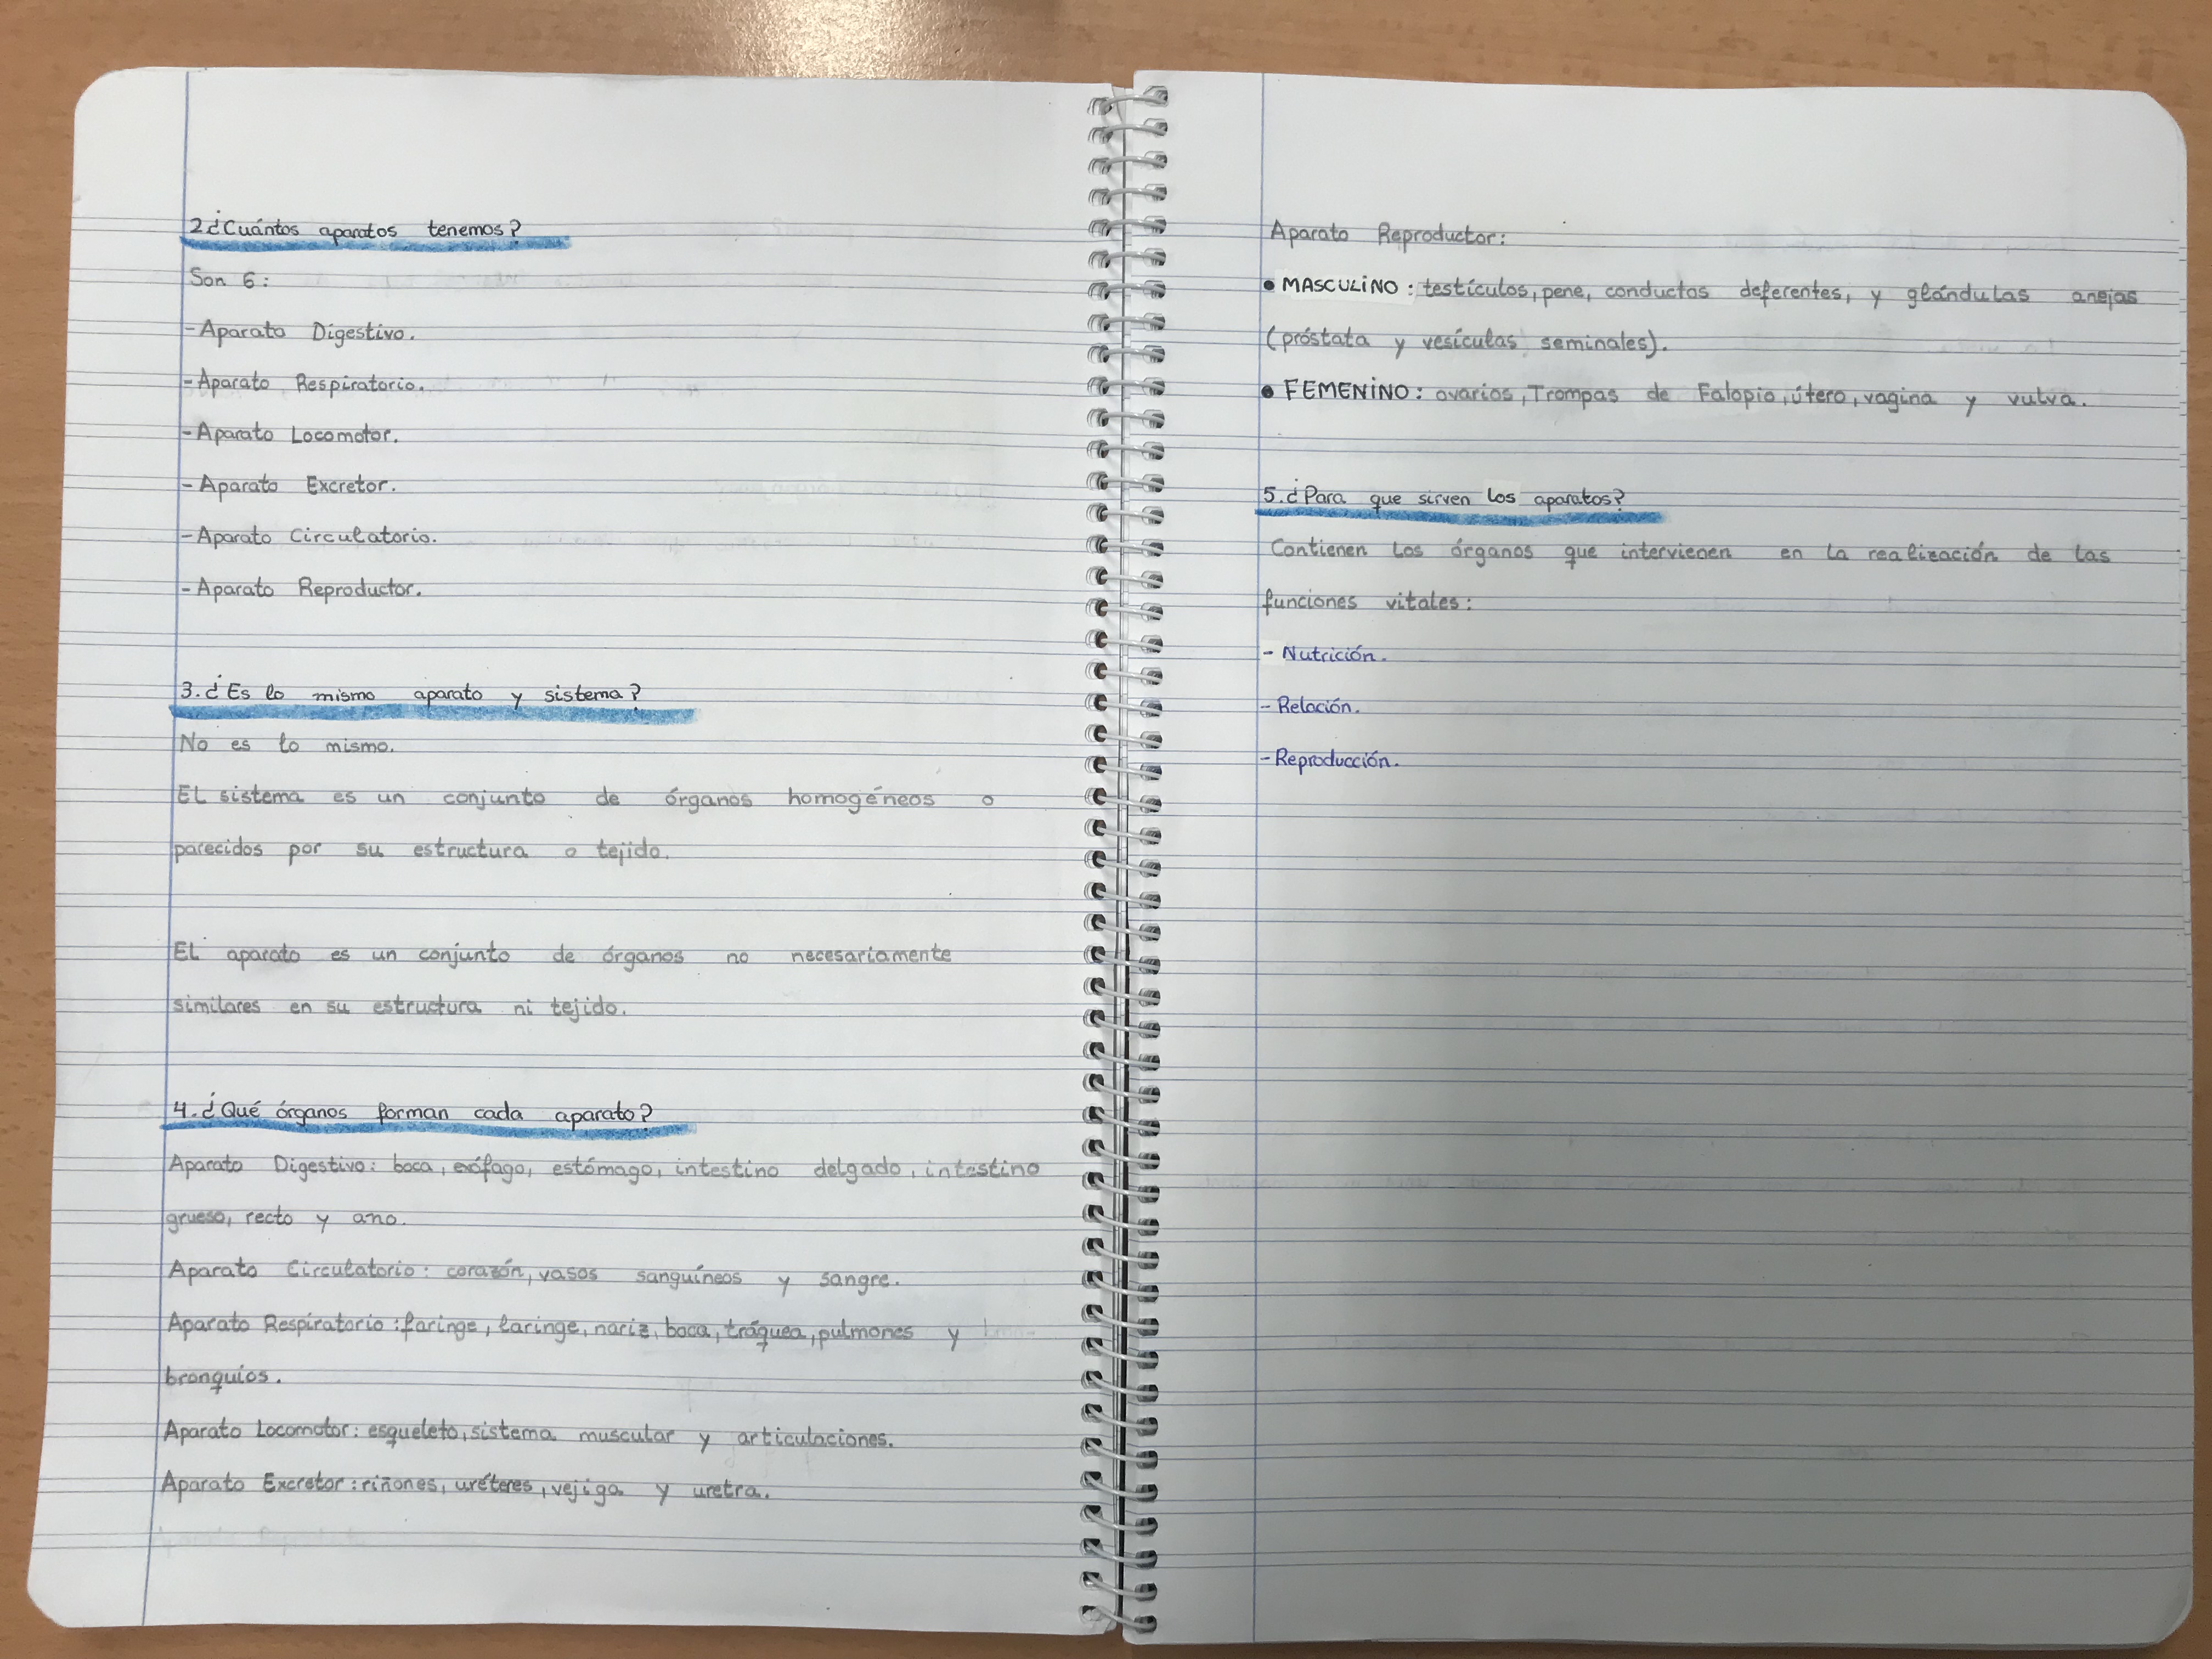 2¿Cuántos aparatos tenemos?
Son 6:
-Aparato Digestivo.
-Aparato Respiratorio.
-Aparato Locomotor.
-Aparato Excretor.
-Aparato Circulatorio.
-Aparato Reproductor.
3.¿Es lo mismo aparato y sistema?
No es lo mismo.
El sistema es un conjunto de órganos homogéneos o
parecidos por su estructura o tejido.
El aparato es un conjunto de órganos no necesariamente
similares en su estructura ni tejido.
4.¿Qué órganos forman cada aparato?
Aparato Digestivo: boca, esófago, estómago, intestino delgado, intestino
grueso, recto y ano.
Aparato Circulatorio: corazón, vasos sanguíneos y sangre.
Aparato Respiratorio: faringe, laringe, nariz, boca, tráquea, pulmones y
bronquios.
Aparato Locomotor: esqueleto, sistema muscular y articulaciones.
Aparato Excretor: riñones, uréteres, vejiga y uretra.
Aparato Reproductor:
• MASCULINO: testículos, pene, conductos deferentes, y glándulas anejas
(próstata y vesículas seminales).
• FEMENINO: ovarios, Trompas de Falopio, útero, vagina y vulva.
5.¿Para que sirven los aparatos?
Contienen los órganos que intervienen en la realización de las
funciones vitales:
- Nutrición.
- Relación.
- Reproducción.